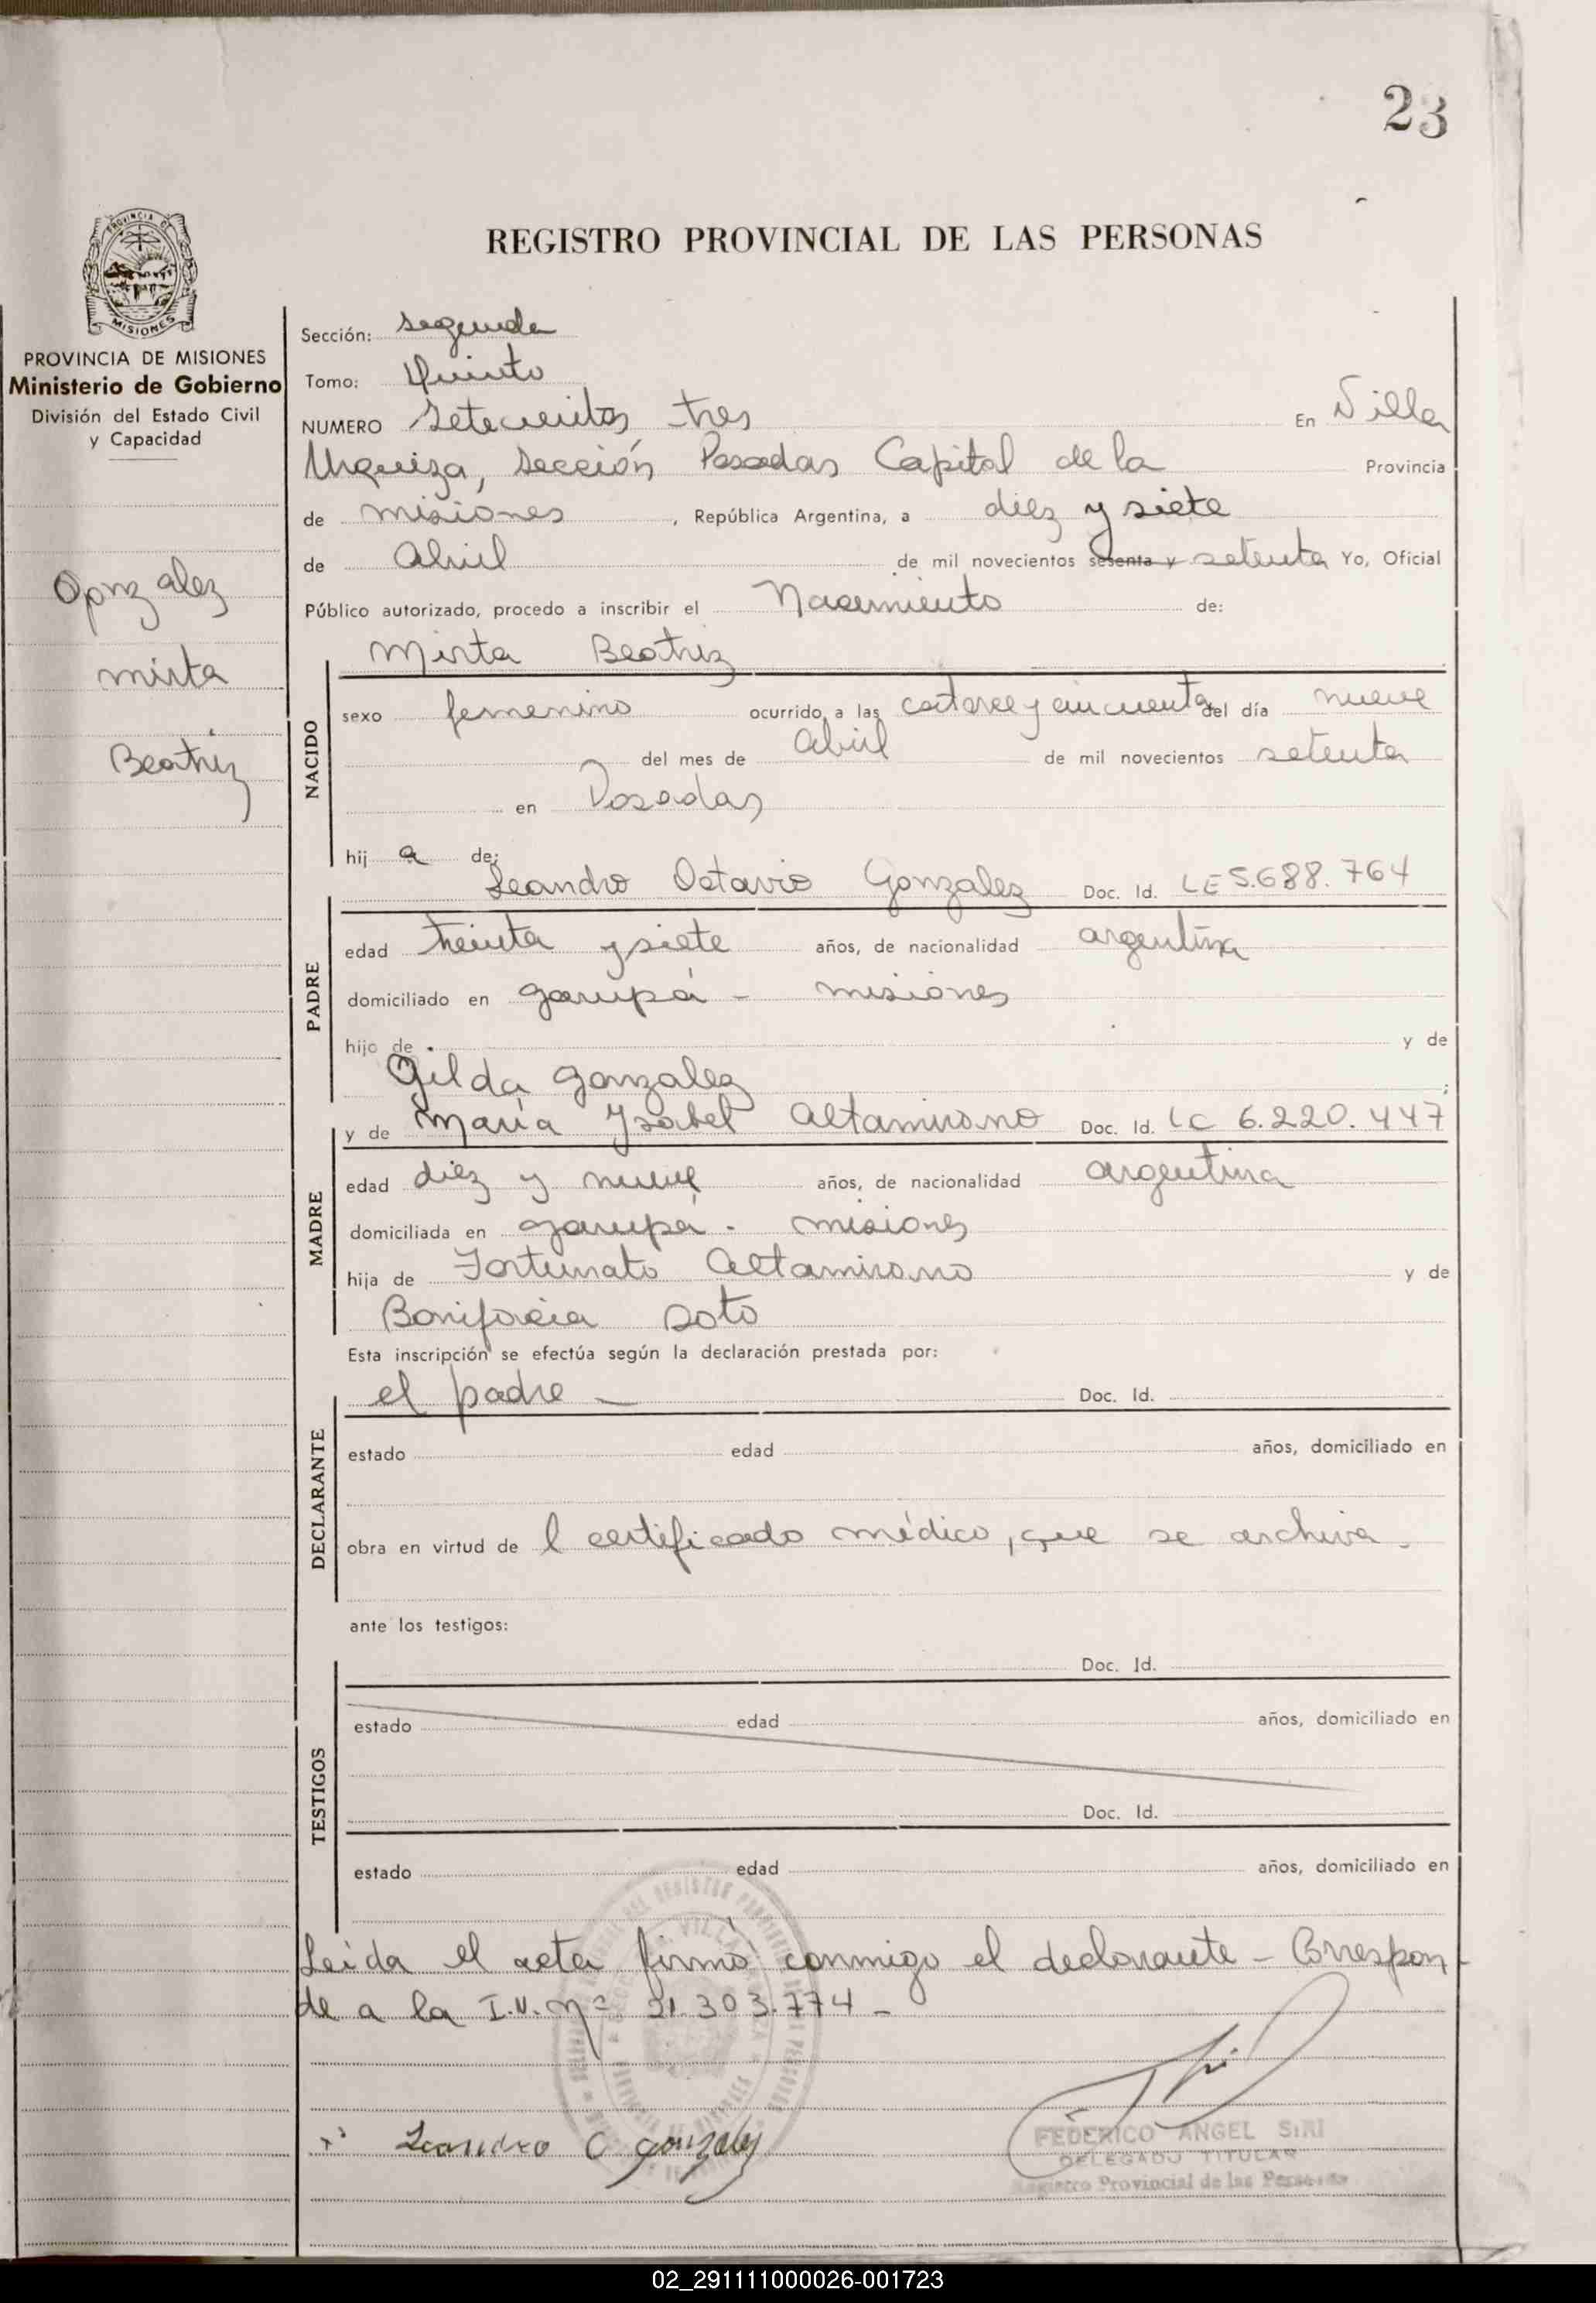 23
REGISTRO PROVINCIAL DE LAS PERSONAS
PROVINCIA DE
MISIONES
PROVINCIA DE MISIONES
Ministerio de Gobierno
División del Estado Civil
y Capacidad
Gonzalez
Mirta
Beatriz
Sección: Segunda
Tomo: Quinto
NUMERO Setecientos tres En Villa
Urquiza, Sección Posadas Capital de la Provincia
de Misiones, República Argentina, a diez y siete
de Abril de mil novecientos sesenta y setenta Yo, Oficial
Público autorizado, procedo a inscribir el Nacimiento de:
Mirta Beatriz
NACIDO
sexo femenino ocurrido a las catorce y cincuenta del día nueve
del mes de abril de mil novecientos setenta
en Posadas
hij a de:
Leandro Octavio Gonzalez Doc. Id. LE 5.688.764
PADRE
edad treinta y siete años, de nacionalidad argentina
domiciliado en Garupá - Misiones
hijo de y de
Gilda Gonzalez ;
y de María Ysabel Altamirano Doc. Id. LC 6.220.447
MADRE
edad diez y nueve años, de nacionalidad argentina
domiciliada en Garupá - Misiones
hija de Fortunato Altamirano y de
Bonifacia Soto
Esta inscripción se efectúa según la declaración prestada por:
el padre - Doc. Id.
DECLARANTE
estado edad años, domiciliado en
obra en virtud de l certificado médico, que se archiva.
ante los testigos:
Doc. Id.
TESTIGOS
estado edad años, domiciliado en
Doc. Id.
estado edad años, domiciliado en
Leída el acta firmó conmigo el declarante - Correspon
de a la I.N. Nº 21.303.774 -
Leandro O Gonzalez
FEDERICO ANGEL SIRI
DELEGADO TITULAR
Registro Provincial de las Personas
02_291111000026-001723